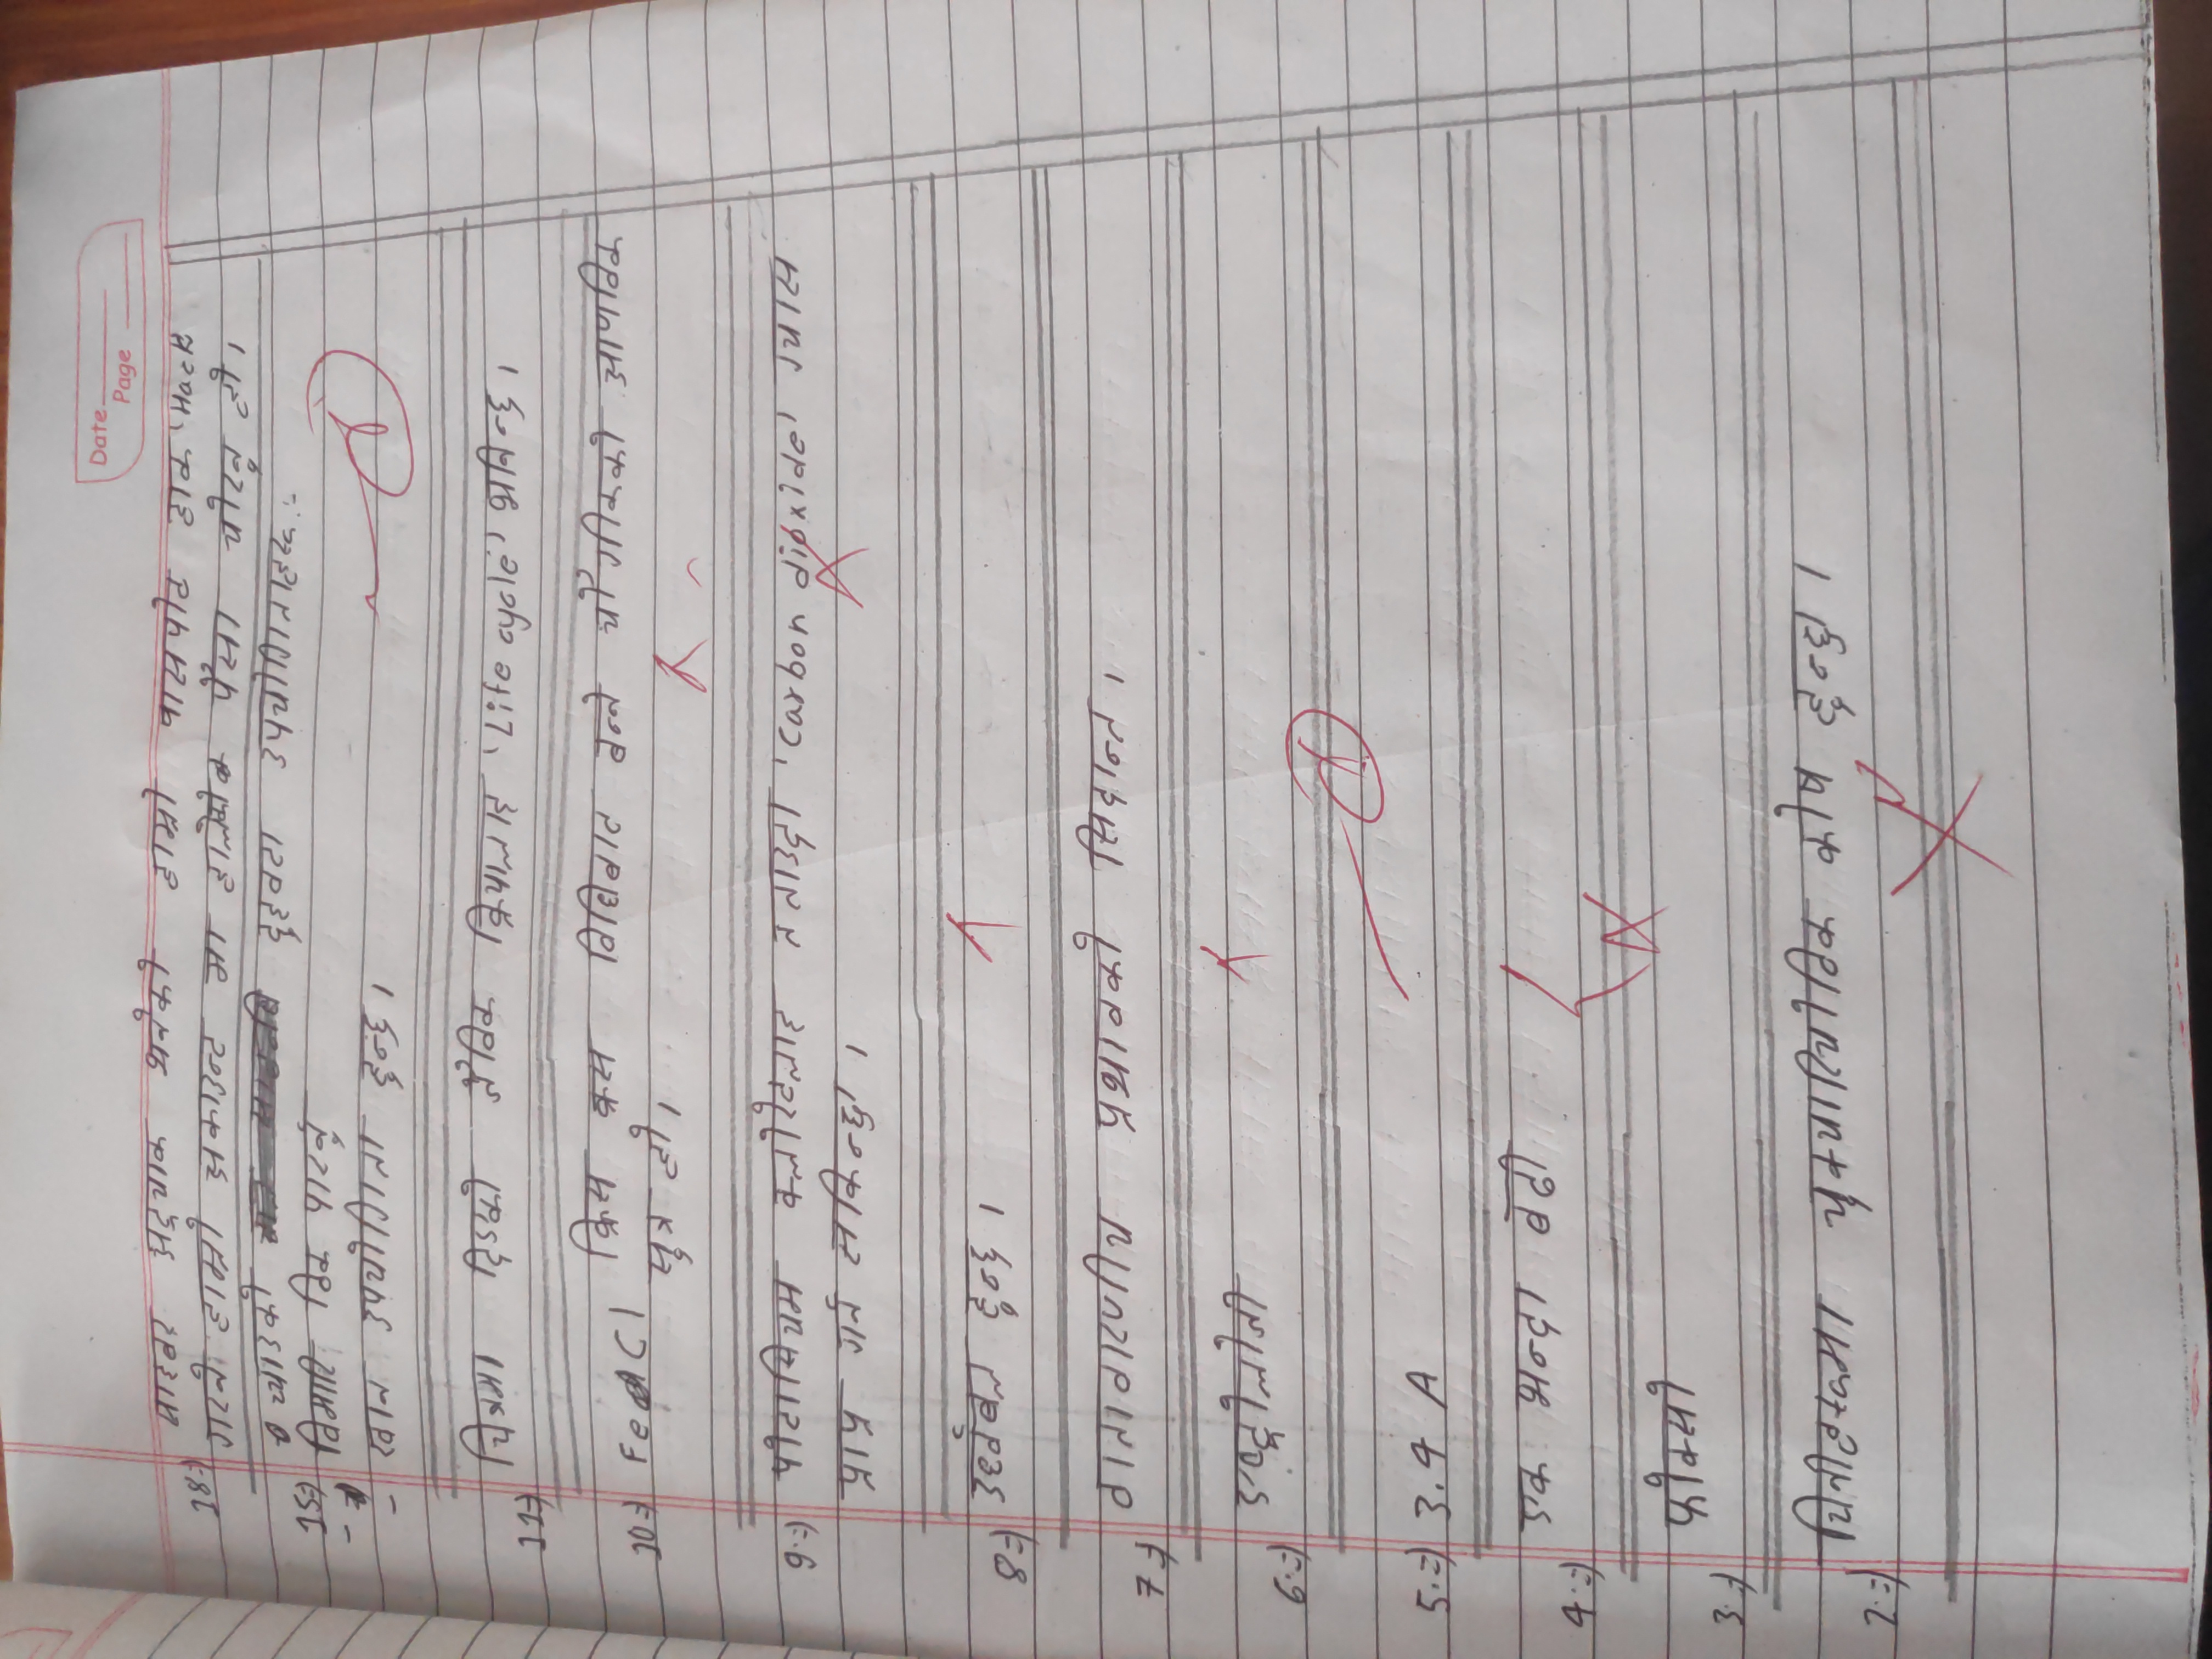 Date
Page
साइबर अट्याक भनेको हाम्रो पासपोट हाक 'Hack
18⇒ गरने हाम्रो अकाउन्ट मा हालेको पैसा चोरनु हो।
च्याउको दुइवटा उपयोगिताहरू:-
15⇒ विमारि ठिक पारर्नु
- खान उपयोगिता हुन्छ।
11⇒ चित्रमा दिएको जैविक क्रियालाइ 'Life cycle' भनिन्छ।
10⇒ Fe Cl क्रिस क्रस विधिबाट बन्ने यौगीकको आणविक
सुत्र हो।
9.⇒ पोटासियम क्लोरेटलाइ तताउदा 'carbon dioxide' ग्यास
प्राप्न गर्न सकिन्छ।
8⇒ उर्ध्वबल हुन्छ।
7⇒ वातावारणीय प्रभावको सिदान्त।
6.⇒ एष्ट्रोलोजी
5.⇒ 3.4 A
4.⇒ एक भन्दा बढी
3.⇒ फोक्सो
2.⇒ यिनीहरूमा युक्यारियोटिक कोष हुन्छ।